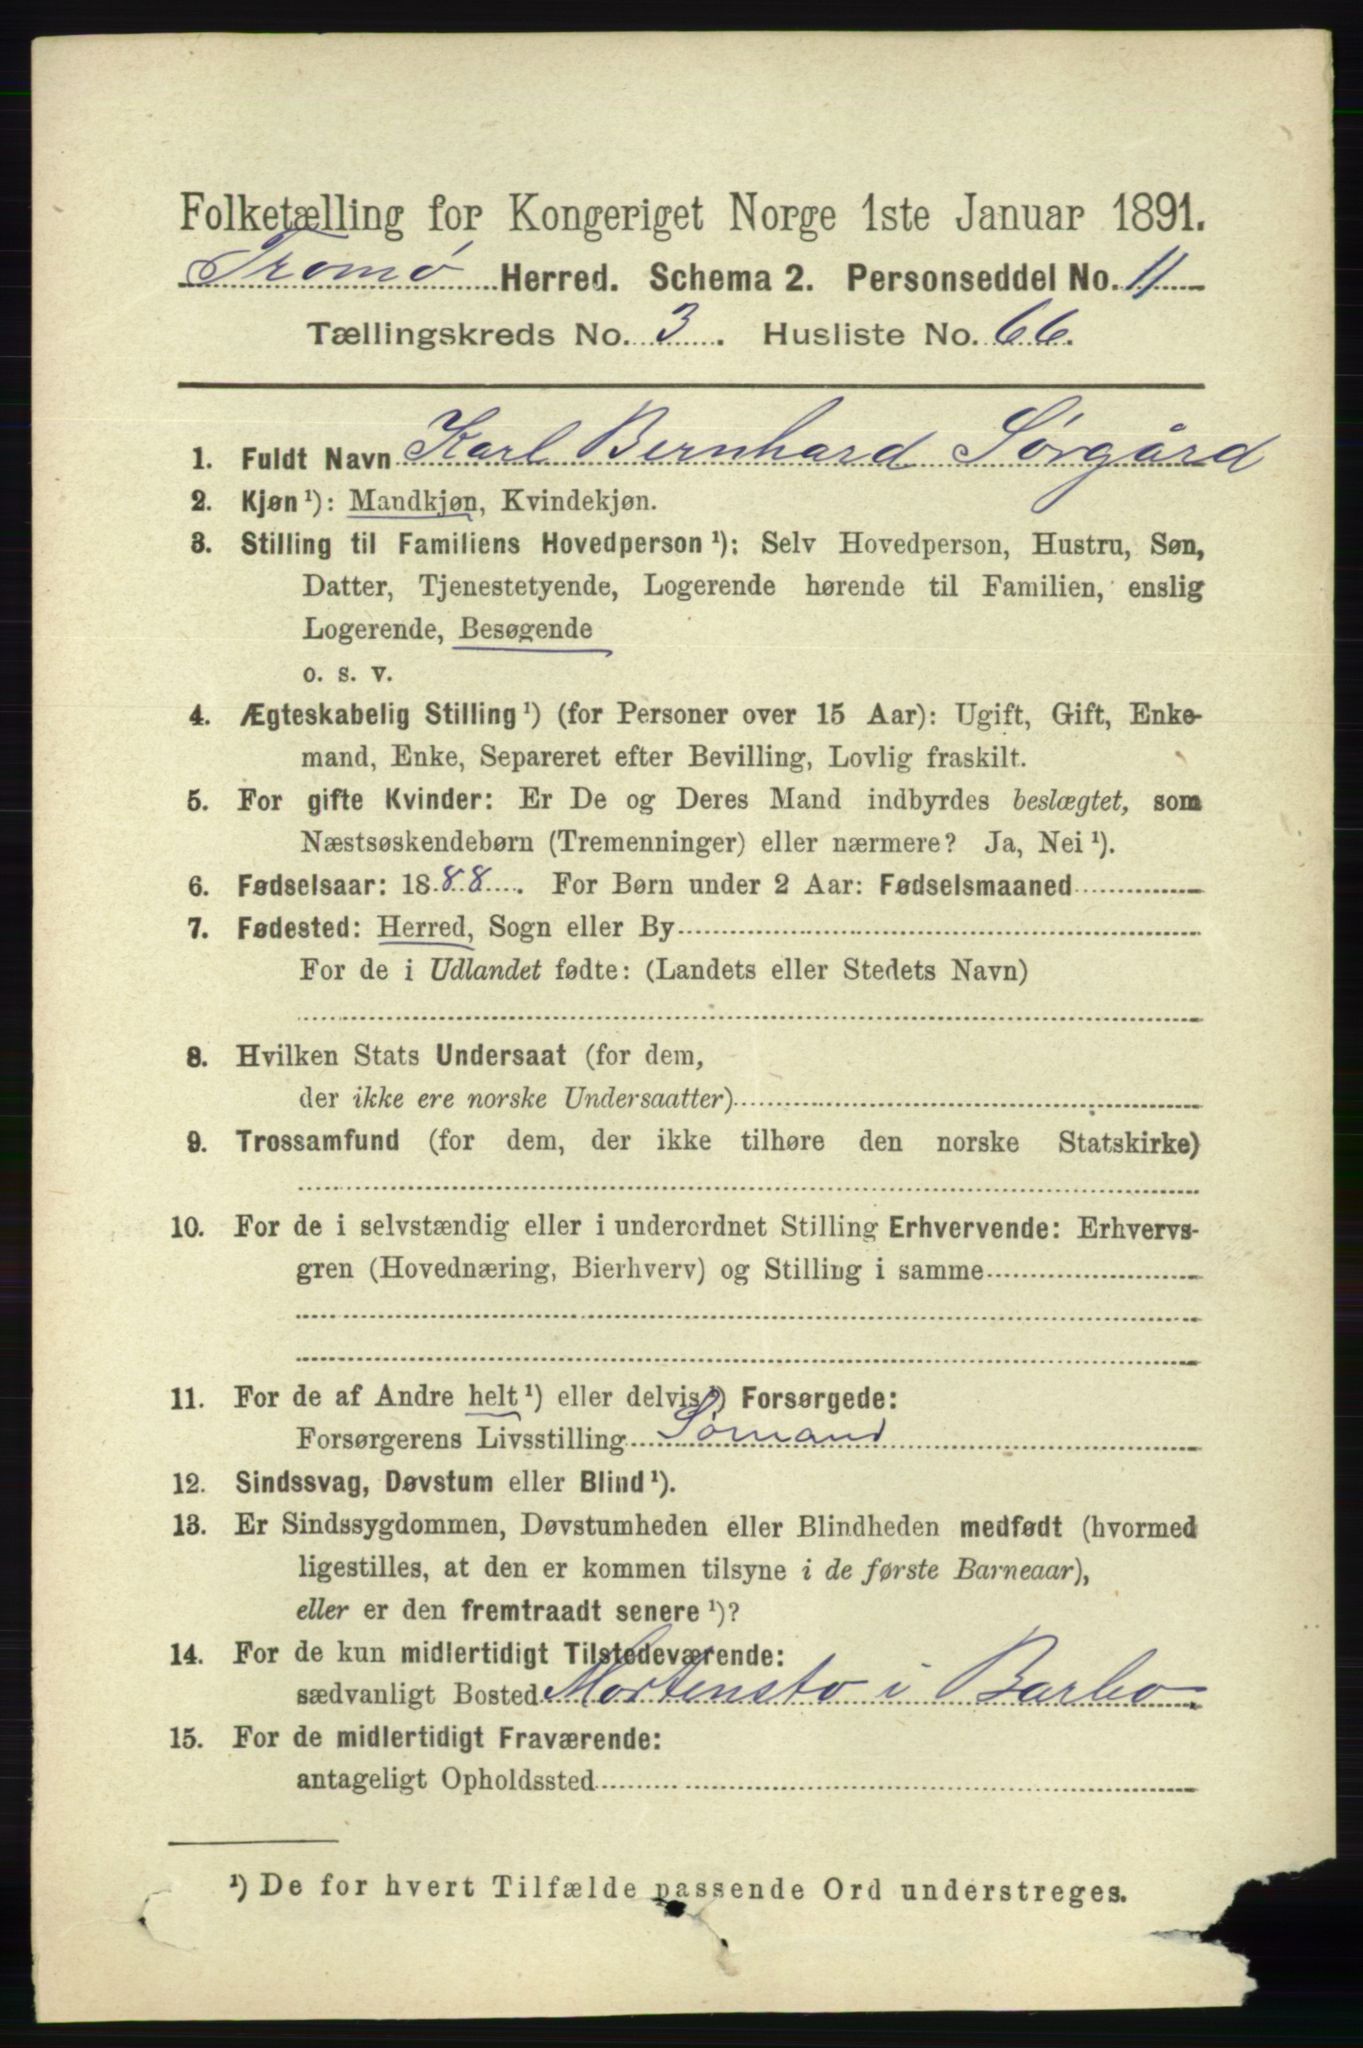 Folketælling for Kongeriget Norge 1ste Januar 1891.
Tromø Herred. Schema 2. Personseddel No. 11
Tællingskreds No. 3. Husliste No. 66.
1. Fuldt Navn Karl Bernhard Sørgård
2. Kjøn ¹): Mandkjøn, Kvindekjøn.
3. Stilling til Familiens Hovedperson ¹): Selv Hovedperson, Hustru, Søn,
Datter, Tjenestetyende, Logerende hørende til Familien, enslig
Logerende, Besøgende
o. s. v.
4. Ægteskabelig Stilling ¹) (for Personer over 15 Aar): Ugift, Gift, Enke-
mand, Enke, Separeret efter Bevilling, Lovlig fraskilt.
5. For gifte Kvinder: Er De og Deres Mand indbyrdes beslægtet, som
Næstsøskendebørn (Tremenninger) eller nærmere? Ja, Nei ¹).
6. Fødselsaar: 1888. For Børn under 2 Aar: Fødselsmaaned
7. Fødested: Herred, Sogn eller By
For de i Udlandet fødte: (Landets eller Stedets Navn)
8. Hvilken Stats Undersaat (for dem,
der ikke ere norske Undersaatter)
9. Trossamfund (for dem, der ikke tilhøre den norske Statskirke)
10. For de i selvstændig eller i underordnet Stilling Erhvervende: Erhvervs-
gren (Hovednæring, Bierhverv) og Stilling i samme
11. For de af Andre helt ¹) eller delvis ¹) Forsørgede:
Forsørgerens Livsstilling Sømand
12. Sindssvag, Døvstum eller Blind ¹).
13. Er Sindssygdommen, Døvstumheden eller Blindheden medfødt (hvormed
ligestilles, at den er kommen tilsyne i de første Barneaar),
eller er den fremtraadt senere ¹)?
14. For de kun midlertidigt Tilstedeværende:
sædvanligt Bosted Mortensto i Barbo.
15. For de midlertidigt Fraværende:
antageligt Opholdssted
¹) De for hvert Tilfælde passende Ord understreges.